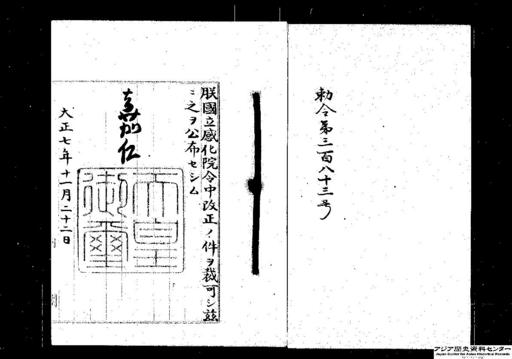 勅令第三百八十三号
朕國立感化院令中改正ノ件ヲ裁可シ茲
ニ之ヲ公布セシム
嘉仁
天皇御璽
大正七年十一月二十二日
アジア歴史資料センター
Japan Center for Asian Historical Records